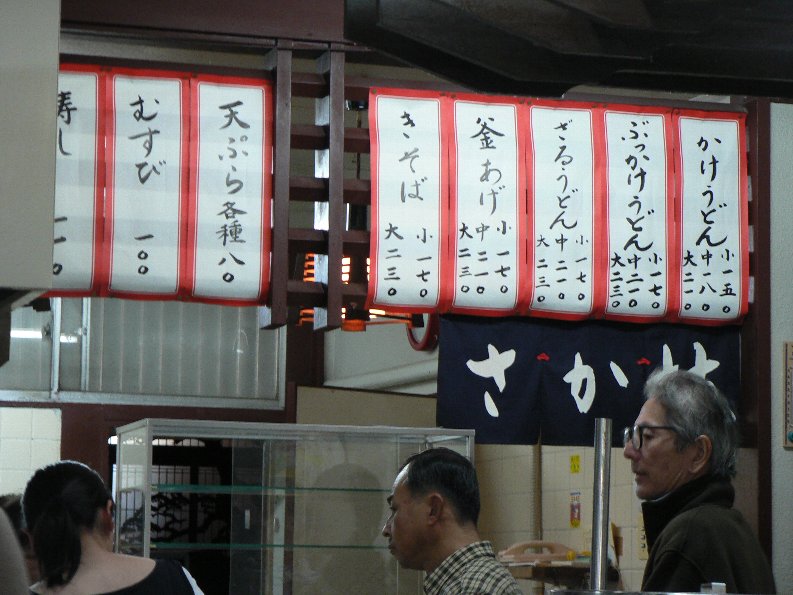 かけうどん
小 一五〇
中 一八〇
大 二一〇
ぶっかけうどん
小 一七〇
中 二一〇
大 二三〇
ざるうどん
小 一七〇
中 二一〇
大 二三〇
釜あげ
小 一七〇
中 二一〇
大 二三〇
きそば
小 一七〇
大 二三〇
天ぷら各種 八〇
むすび 一〇〇
寿し
さか